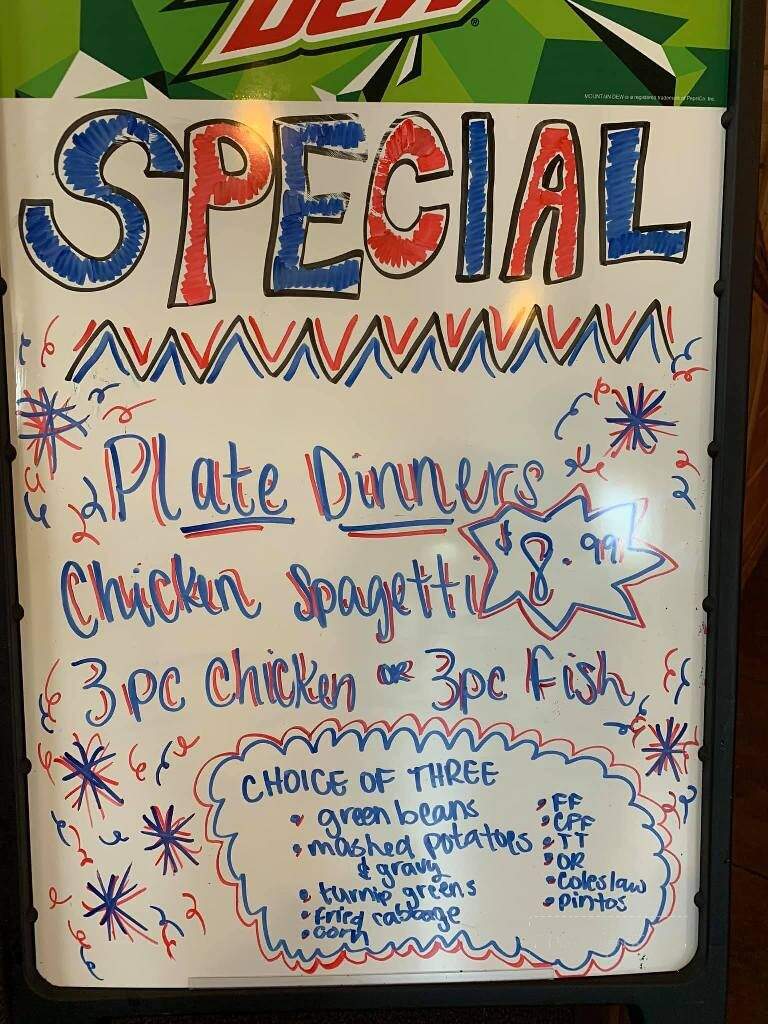 DEW
®
MOUNTAIN DEW is a registered trademark of PepsiCo, Inc.
SPECIAL
Plate Dinners
$8.99
Chicken Spagetti
3pc Chicken OR 3pc Fish
CHOICE OF THREE
• green beans
• mashed potatoes
& gravy
• turnip greens
• fried cabbage
• corn
• FF
• CFF
• TT
• OR
• Coleslaw
• pintos